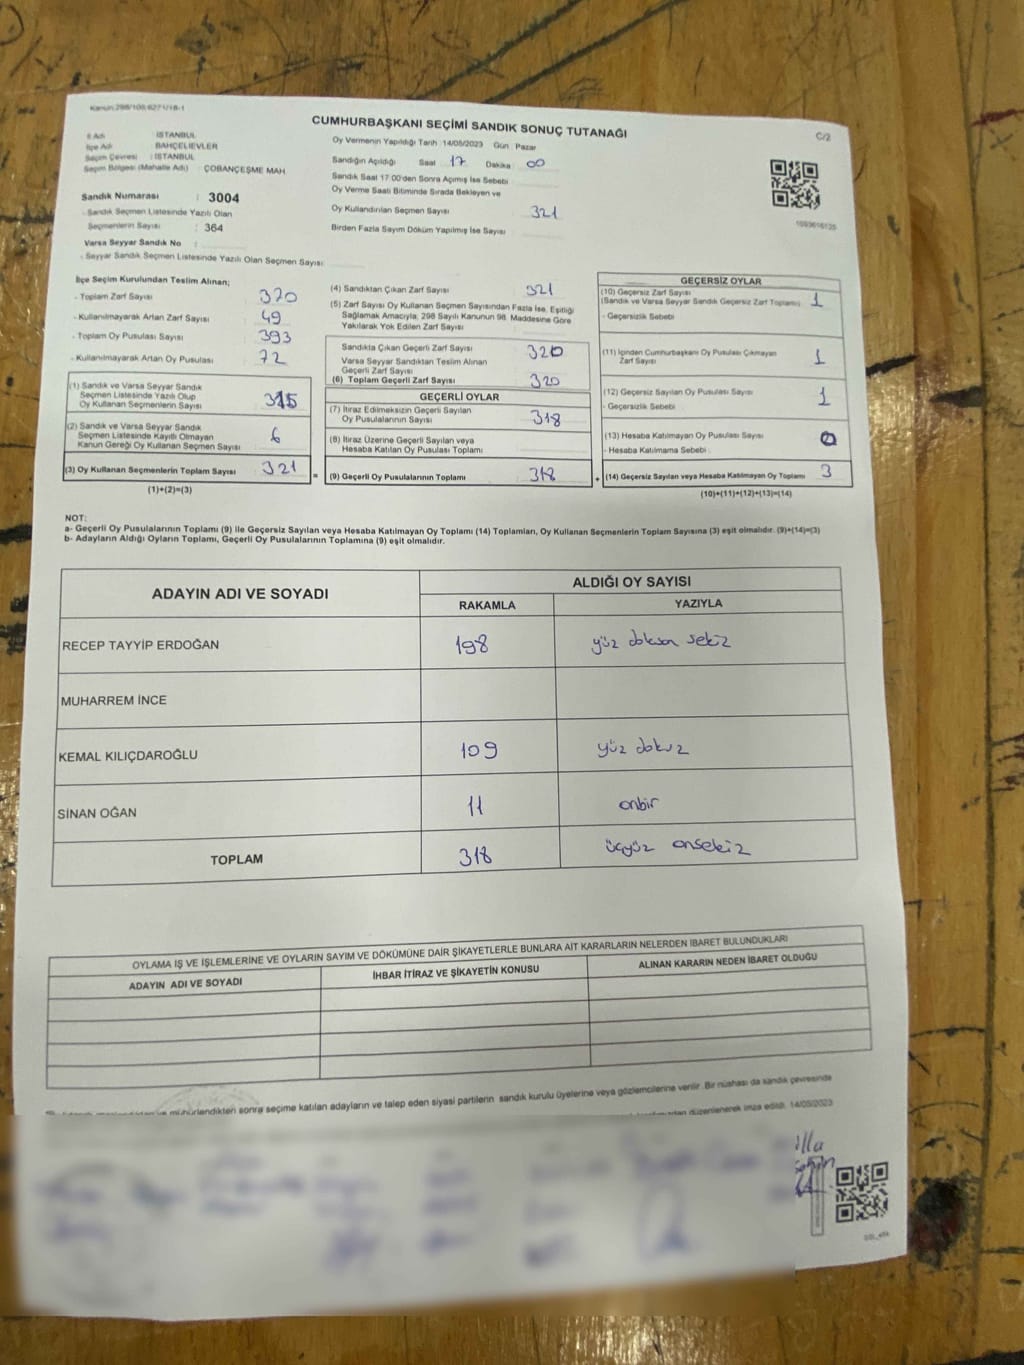 Kanun:298/108;6271/18-1
CUMHURBAŞKANI SEÇİMİ SANDIK SONUÇ TUTANAĞI
C/2
İl Adı : İSTANBUL
İlçe Adı : BAHÇELİEVLER
Seçim Çevresi : İSTANBUL
Seçim Bölgesi (Mahalle Adı) : ÇOBANÇEŞME MAH
Sandık Numarası : 3004
- Sandık Seçmen Listesinde Yazılı Olan
Seçmenlerin Sayısı : 364
Varsa Seyyar Sandık No :
- Seyyar Sandık Seçmen Listesinde Yazılı Olan Seçmen Sayısı:
Oy Vermenin Yapıldığı Tarih 14/05/2023 Gün Pazar
Sandığın Açıldığı Saat 17 Dakika 00
Sandık Saat 17:00'den Sonra Açmış İse Sebebi
Oy Verme Saati Bitiminde Sırada Bekleyen ve
Oy Kullandırılan Seçmen Sayısı 321
Birden Fazla Sayım Döküm Yapılmış İse Sayısı
İlçe Seçim Kurulundan Teslim Alınan;
- Toplam Zarf Sayısı 370
- Kullanılmayarak Artan Zarf Sayısı 49
- Toplam Oy Pusulası Sayısı 393
- Kullanılmayarak Artan Oy Pusulası 72
(1) Sandık ve Varsa Seyyar Sandık
Seçmen Listesinde Yazılı Olup
Oy Kullanan Seçmenlerin Sayısı 315
(2) Sandık ve Varsa Seyyar Sandık
Seçmen Listesinde Kayıtlı Olmayan
Kanun Gereği Oy Kullanan Seçmen Sayısı 6
(3) Oy Kullanan Seçmenlerin Toplam Sayısı 321 =
(1)+(2)=(3)
(4) Sandıktan Çıkan Zarf Sayısı 321
(5) Zarf Sayısı Oy Kullanan Seçmen Sayısından Fazla İse, Eşitliği
Sağlamak Amacıyla, 298 Sayılı Kanunun 98. Maddesine Göre
Yakılarak Yok Edilen Zarf Sayısı
Sandıkta Çıkan Geçerli Zarf Sayısı 320
Varsa Seyyar Sandıktan Teslim Alınan
Geçerli Zarf Sayısı
(6) Toplam Geçerli Zarf Sayısı 320
GEÇERLİ OYLAR
(7) İtiraz Edilmeksizin Geçerli Sayılan
Oy Pusulalarının Sayısı 318
(8) İtiraz Üzerine Geçerli Sayılan veya
Hesaba Katılan Oy Pusulası Toplamı
(9) Geçerli Oy Pusulalarının Toplamı 318 +
GEÇERSİZ OYLAR
(10) Geçersiz Zarf Sayısı
(Sandık ve Varsa Seyyar Sandık Geçersiz Zarf Toplamı) 1
- Geçersizlik Sebebi
(11) İçinden Cumhurbaşkanı Oy Pusulası Çıkmayan
Zarf Sayısı 1
(12) Geçersiz Sayılan Oy Pusulası Sayısı 1
- Geçersizlik Sebebi
(13) Hesaba Katılmayan Oy Pusulası Sayısı
- Hesaba Katılmama Sebebi :
(14) Geçersiz Sayılan veya Hesaba Katılmayan Oy Toplamı 3
(10)+(11)+(12)+(13)=(14)
NOT:
a- Geçerli Oy Pusulalarının Toplamı (9) ile Geçersiz Sayılan veya Hesaba Katılmayan Oy Toplamı (14) Toplamları, Oy Kullanan Seçmenlerin Toplam Sayısına (3) eşit olmalıdır. (9)+(14)=(3)
b- Adayların Aldığı Oyların Toplamı, Geçerli Oy Pusulalarının Toplamına (9) eşit olmalıdır.
ADAYIN ADI VE SOYADI
ALDIĞI OY SAYISI
RAKAMLA YAZIYLA
RECEP TAYYİP ERDOĞAN 198 yüz doksan sekiz
MUHARREM İNCE
KEMAL KILIÇDAROĞLU 109 yüz dokuz
SİNAN OĞAN 11 onbir
TOPLAM 318 üçyüz onsekiz
OYLAMA İŞ VE İŞLEMLERİNE VE OYLARIN SAYIM VE DÖKÜMÜNE DAİR ŞİKAYETLERLE BUNLARA AİT KARARLARIN NELERDEN İBARET BULUNDUKLARI
ADAYIN ADI VE SOYADI İHBAR İTİRAZ VE ŞİKAYETİN KONUSU ALINAN KARARIN NEDEN İBARET OLDUĞU
mühürlendikten sonra seçime katılan adayların ve talep eden siyasi partilerin sandık kurulu üyelerine veya gözlemcilerine verilir. Bir nüshası da sandık çevresinde
düzenlenerek imza edildi. 14/05/2023